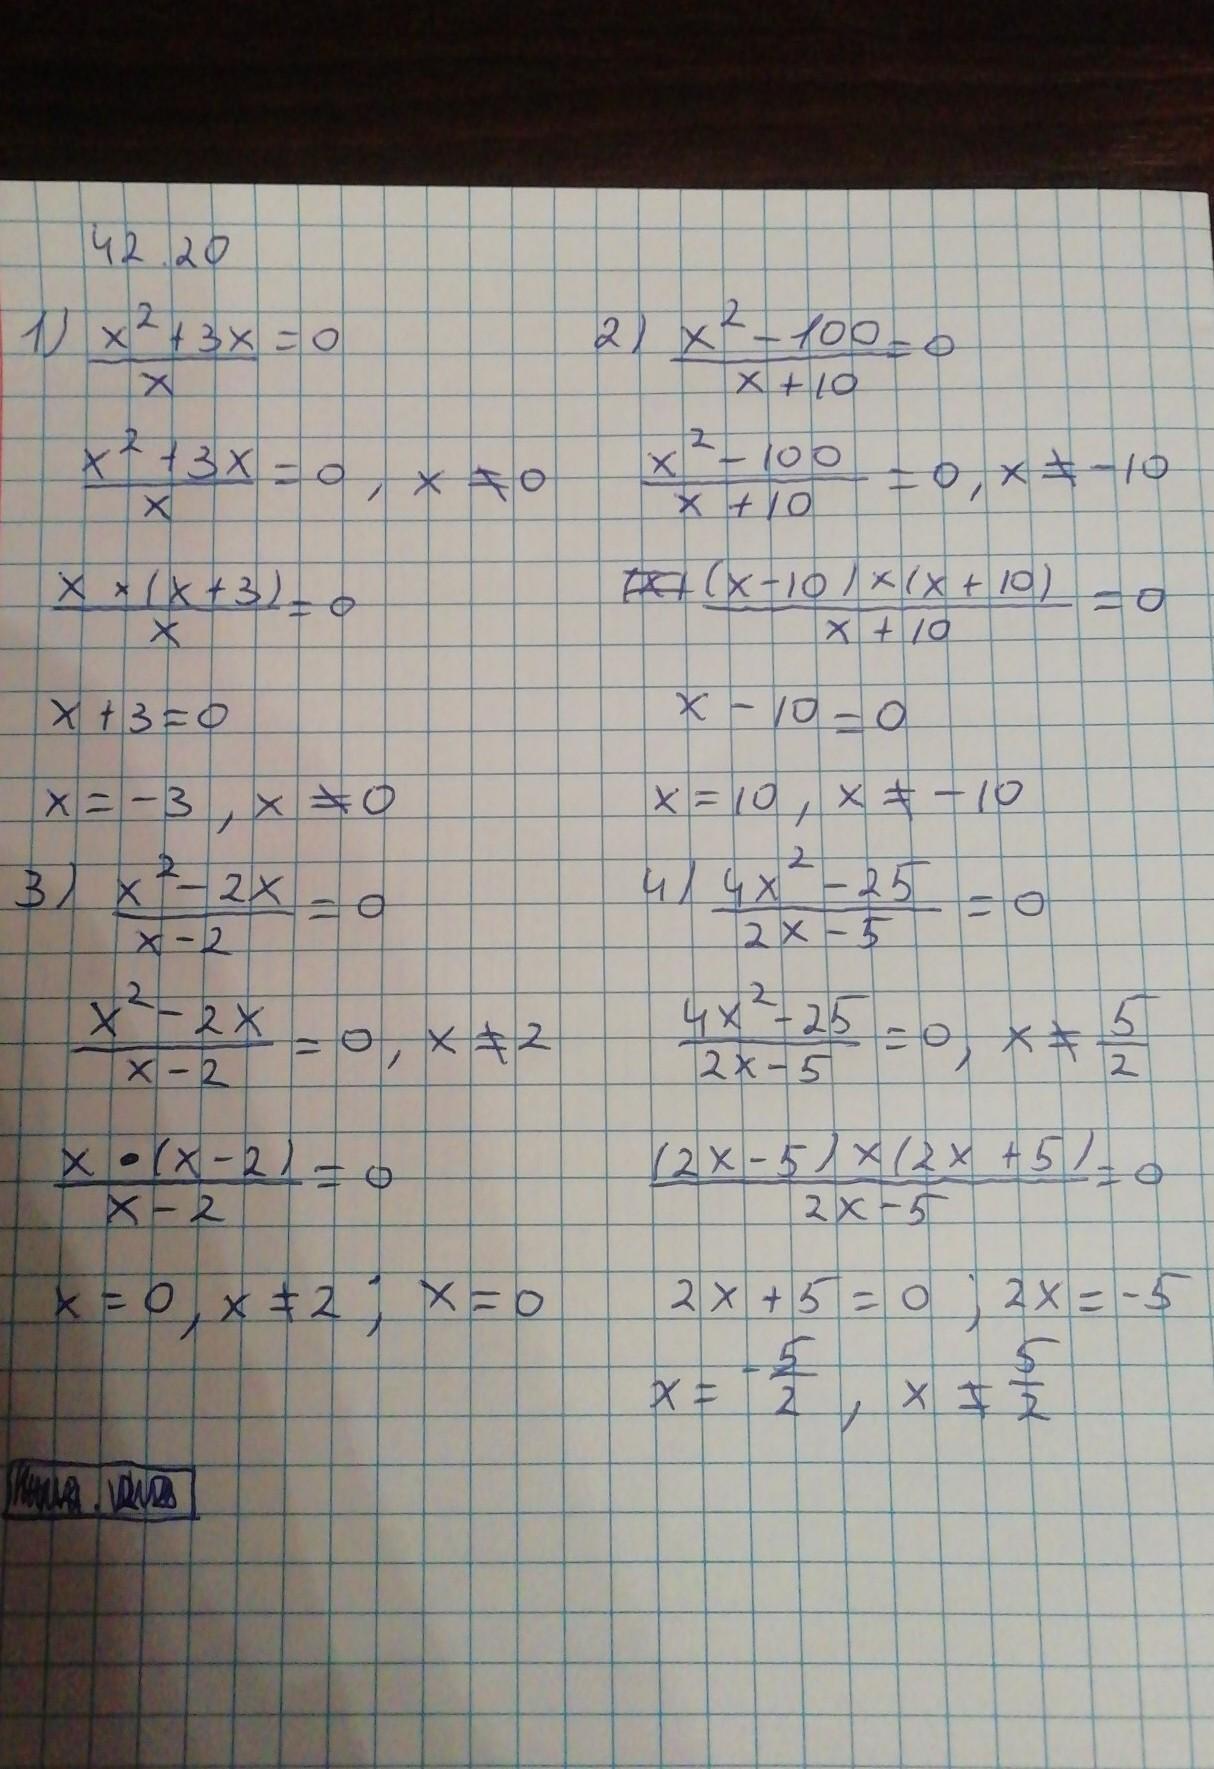 42.20
1) x²+3x/x = 0
x²+3x/x = 0, x ≠ 0
x × (x+3)/x = 0
x+3=0
x = -3, x ≠ 0
2) x²-100/x+10 = 0
x²-100/x+10 = 0, x ≠ -10
(x-10)×(x+10)/x+10 = 0
x - 10 = 0
x = 10, x ≠ -10
3) x²-2x/x-2 = 0
x²-2x/x-2 = 0, x ≠ 2
x • (x-2)/x-2 = 0
x = 0, x ≠ 2; x = 0
4) 4x²-25/2x-5 = 0
4x²-25/2x-5 = 0, x ≠ 5/2
(2x-5)×(2x+5)/2x-5 = 0
2x+5 = 0; 2x = -5
x = -5/2, x ≠ 5/2